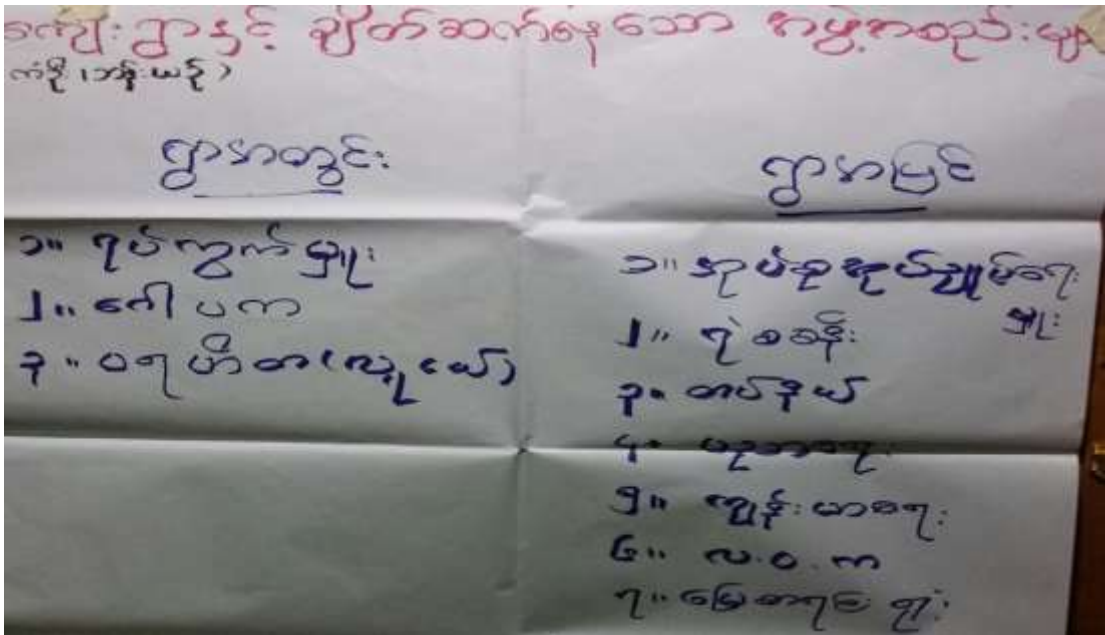 ကျေးရွာနှင့် ချိတ်ဆက်နေသော အဖွဲ့အစည်းများ
ရွာအတွင်း
၁။ ရပ်ကွက်မှူး
၂။ ဂေါပက
၃။ ပရဟိတ(လူငယ်)
ရွာအပြင်
၁။ အုပ်စုအုပ်ချုပ်ရေး
မှူး
၂။ ရဲစခန်း
၃။ တပ်နယ်
၄။ ပညာရေး
၅။ ကျန်းမာရေး
၆။ လ.ဝ.က
၇။ မြေစာရင်းရုံး